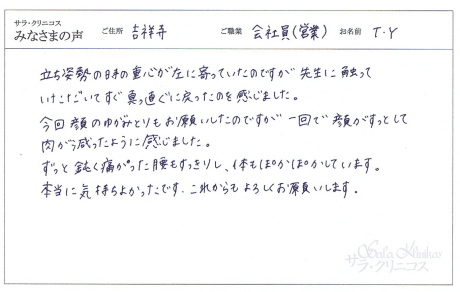 サラ・クリニコス
みなさまの声 ご住所 吉祥寺 ご職業 会社員(営業) お名前 T.Y
立ち姿勢の時の重心が左に寄っていたのですが先生に触って
いただいてすぐ真っ直ぐに戻ったのを感じました。
今回顔のゆがみとりもお願いしたのですが一回で顔がすっとして
肉がう減ったように感じました。
ずっと鈍く痛かった腰もすっきりし、体もぽかぽかしています。
本当に気持ちよかったです。これからもよろしくお願いします。
Sala Klinikos
サラ・クリニコス